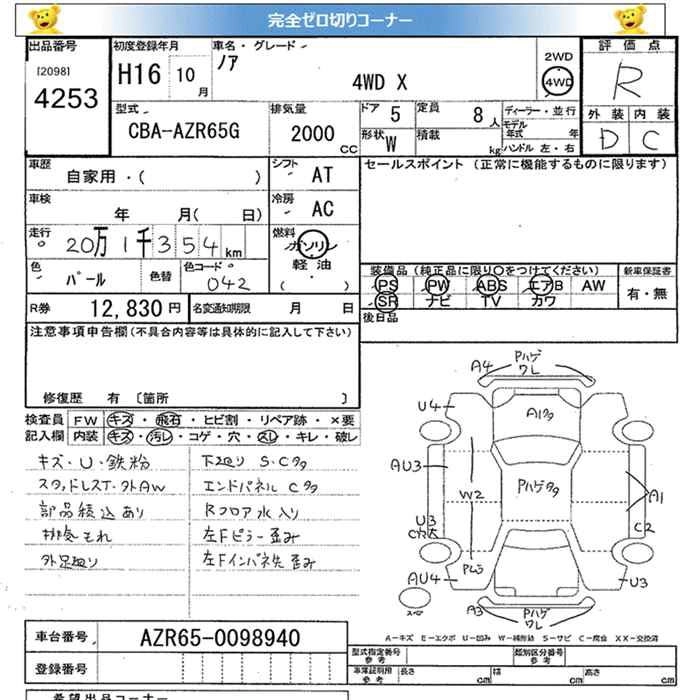 完全ゼロ切りコーナー
出品番号
[2098]
4253
初度登録年月
H16 10月
車名・グレード
ノア
4WD X
2WD
4WD
評価点
R
型式
CBA-AZR65G
排気量
2000 CC
ドア 5
定員 8人
形状 W
積載 kg
ディーラー・並行
モデル年式 年
ハンドル 左・右
外装 内装
D C
車歴
自家用・( )
シフト AT
車検
年 月( 日)
冷房 AC
走行
20万1千354km
燃料
ガソリン・
軽油・
( )
色
パール
色替
色コード
042
セールスポイント (正常に機能するものに限ります)
装備品(純正品に限り○をつけてください)
PS PW ABS エアB AW
SR ナビ TV カワ
新車保証書
有・無
R券 12,830円
名変通知期限 月 日
後日品
注意事項申告欄(不具合内容等は具体的に記入して下さい)
修復歴 有 〔箇所 〕
検査員記入欄
FW キズ・飛石・ヒビ割・リペア跡・×要
内装 キズ・汚レ・コゲ・穴・スレ・キレ・破レ
キズ・U・鉄粉
スタッドレスT・外AW
部品積込あり
排気もれ
外足廻り
下廻り S・C多
エンドパネル C多
Rフロア水入り
左Fピラー歪み
左Fインパネ先歪み
A4
Pハゲ
ワレ
U4
A1多
AU3
W2
Pハゲ多
A1
U3
C穴大
C2
AU4
U3
スペア
A3
Pハゲ
ワレ
A-キズ E-エクボ U-凹み W-補修跡 S-サビ C-腐食 XX-交換済
車台番号 AZR65-0098940
登録番号
型式指定番号 参考
類別区分番号 参考
車庫証明用 参考
長さ cm
幅 cm
高さ cm
希望出品コーナー